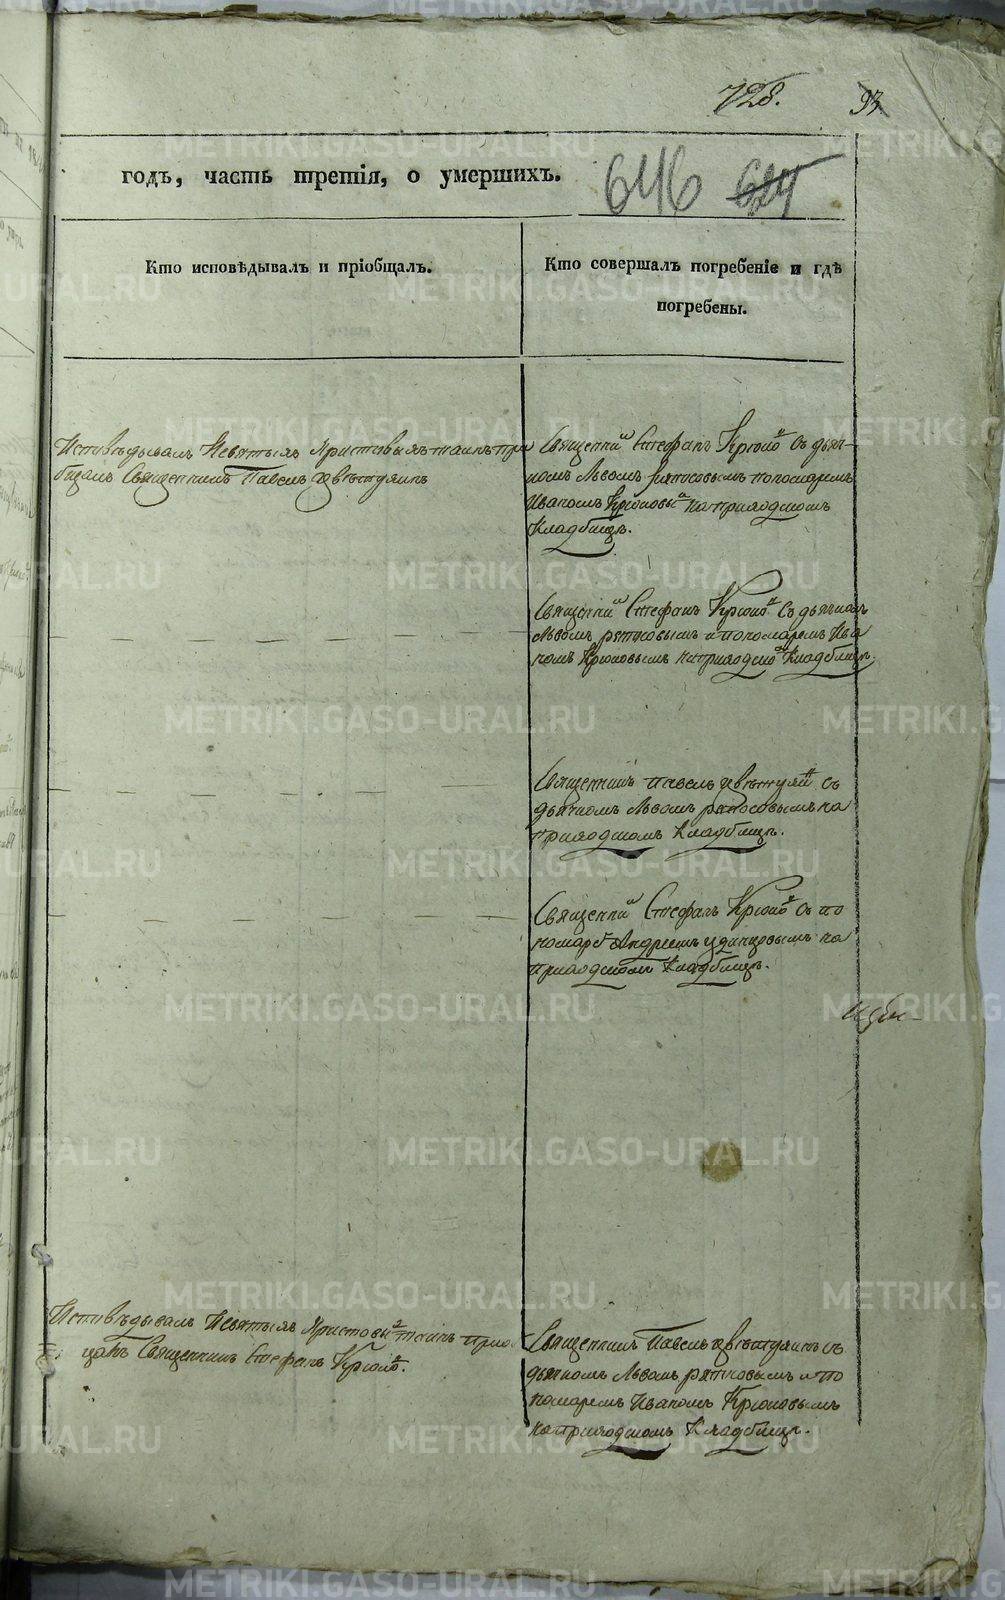 728. 93
годъ, часть третія, о умершихъ. 646 624
Кто исповѣдывалъ и пріобщалъ.
Кто совершалъ погребеніе и гдѣ
погребены.
Исповѣдывалъ Исвятыхъ Христовыхъ таинъ прі
общалъ Священникъ Павелъ
Священни Стефанъ Крюко съ дьяч-
комъ Львомъ пономаремъ
Иваномъ Крюковы на приходскомъ
Кладбищѣ.
Священни Стефанъ Крюко Съ дьячкомъ
Львомъ и пономаремъ Ива
номъ Крюковымъ на приходско Кладбищѣ.
Священникъ Павелъ съ
дьячкомъ Львомъ на
приходскомъ Кладбищѣ.
Священни Стефанъ Крюко съ по
номаре Андреемъ на
приходскомъ Кладбищѣ.
Исповѣдывалъ Исвятыхъ Христовы таинъ пріоб
щалъ Священникъ Стефанъ Крюко.
Священникъ Павелъ съ
дьячкомъ Львомъ и по
номаремъ Иваномъ Крюковымъ
на приходскомъ Кладбищѣ.
METRIKI.GASO-URAL.RU